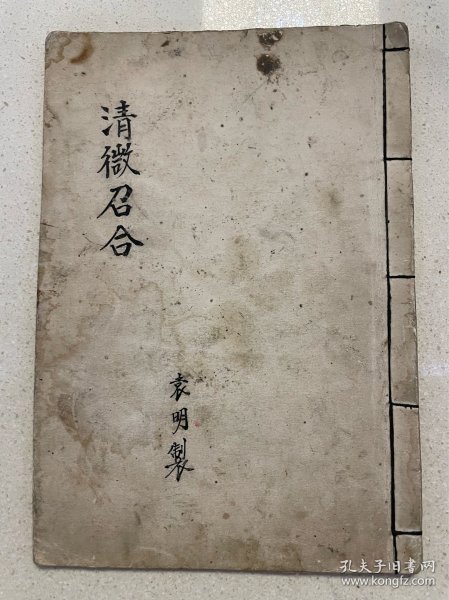 清微召合
袁明製
孔夫子旧书网
www.kongfz.com